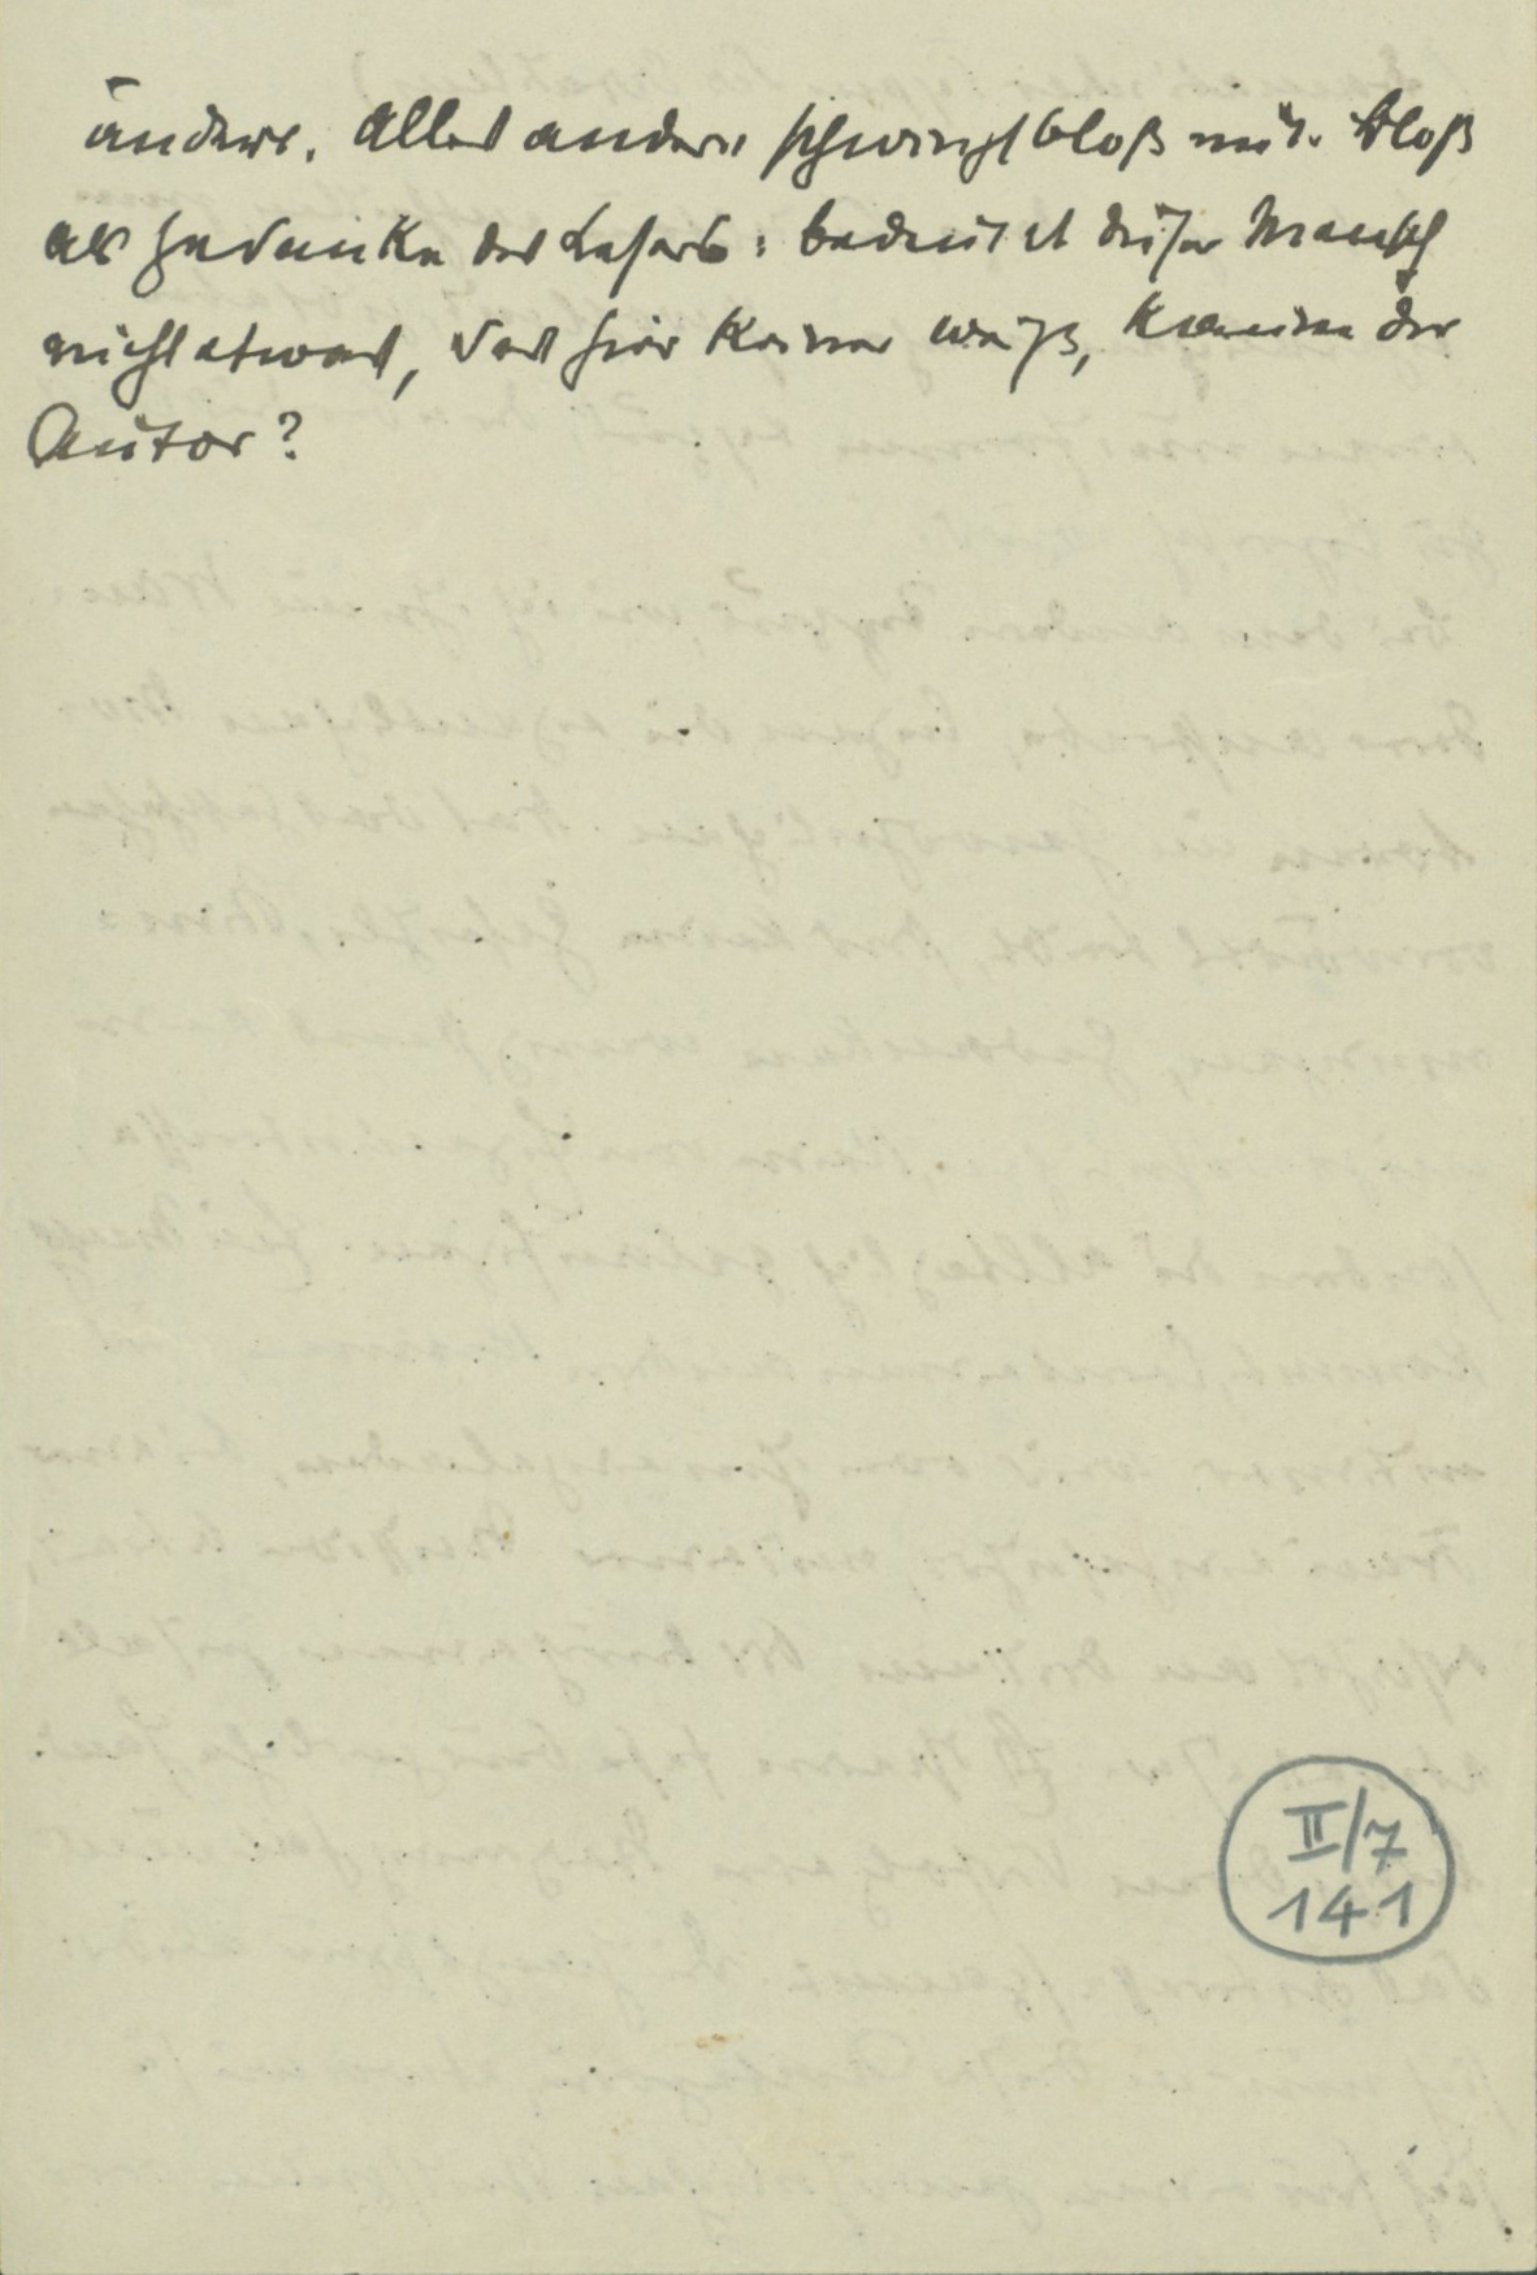 ändere. Alles andere schwingt bloß mit. Bloß
als Gedanke des Lesers: bedeutet dieser Mensch
nicht etwas, das hier keiner weiß, kaum der
Autor?
II/7
141